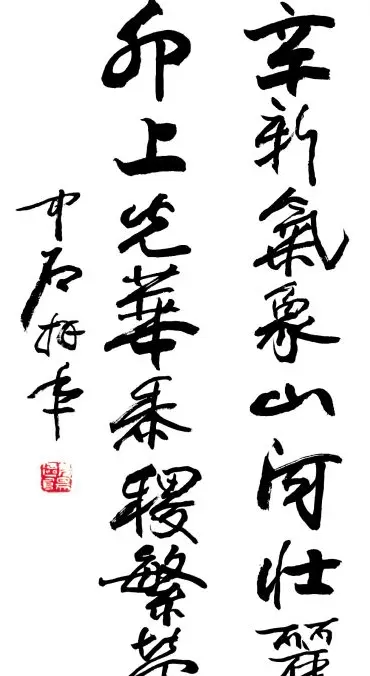 辛新氣象山河壮麗
卯上光華黍稷繁榮
中石拜年